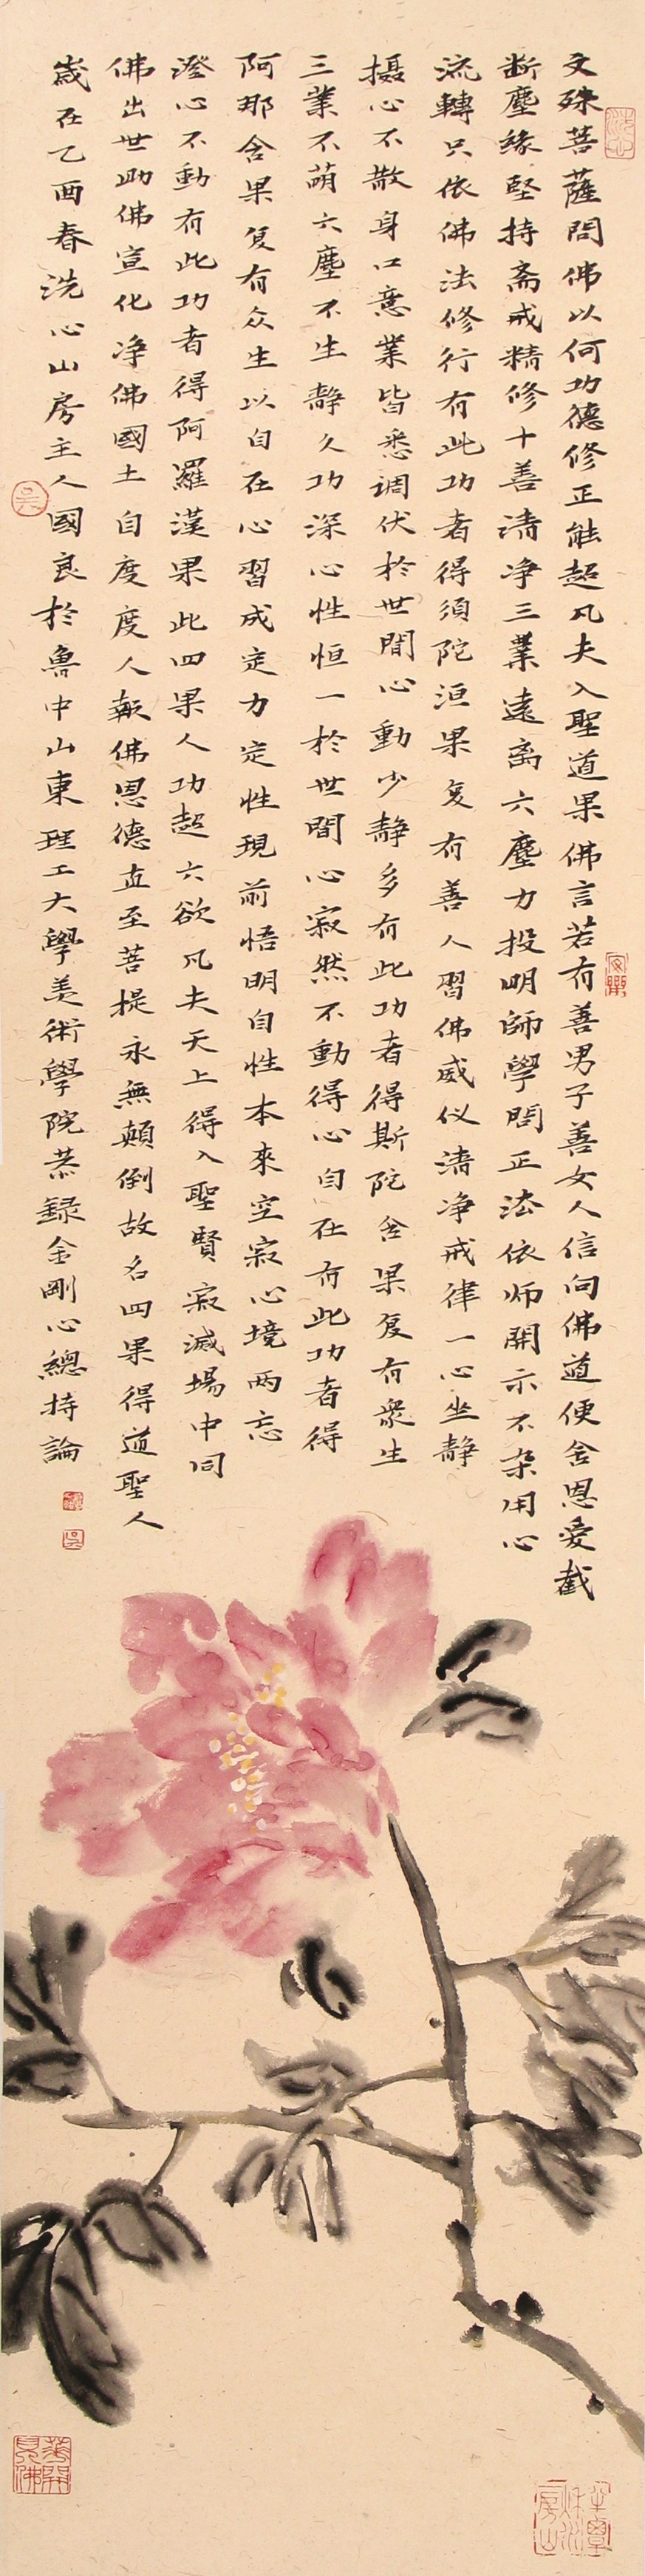 文殊菩薩問佛以何功德修正能超凡夫入聖道果佛言若有善男子善女人信向佛道便舍恩愛截
断塵緣堅持斋戒精修十善清净三業遠离六塵力投明師學問正法依师開示不杂用心
流轉只依佛法修行有此功者得須陀洹果复有善人習佛威仪清净戒律一心坐静
摄心不散身口意業皆悉调伏於世間心動少静多有此功者得斯陀舍果复有衆生
三業不萌六塵不生静久功深心性恒一於世間心寂然不動得心自在有此功者得
阿那含果复有众生以自在心習成定力定性現前悟明自性本來空寂心境两忘
澄心不動有此功者得阿羅漢果此四果人功超六欲凡夫天上得入聖賢寂滅場中同
佛出世助佛宣化净佛國土自度度人報佛恩德直至菩提永無顛倒故名四果得道聖人
歲在乙酉春洗心山房主人國良於魯中山東理工大學美術學院恭録金剛心總持論
吳
吳
華開見佛